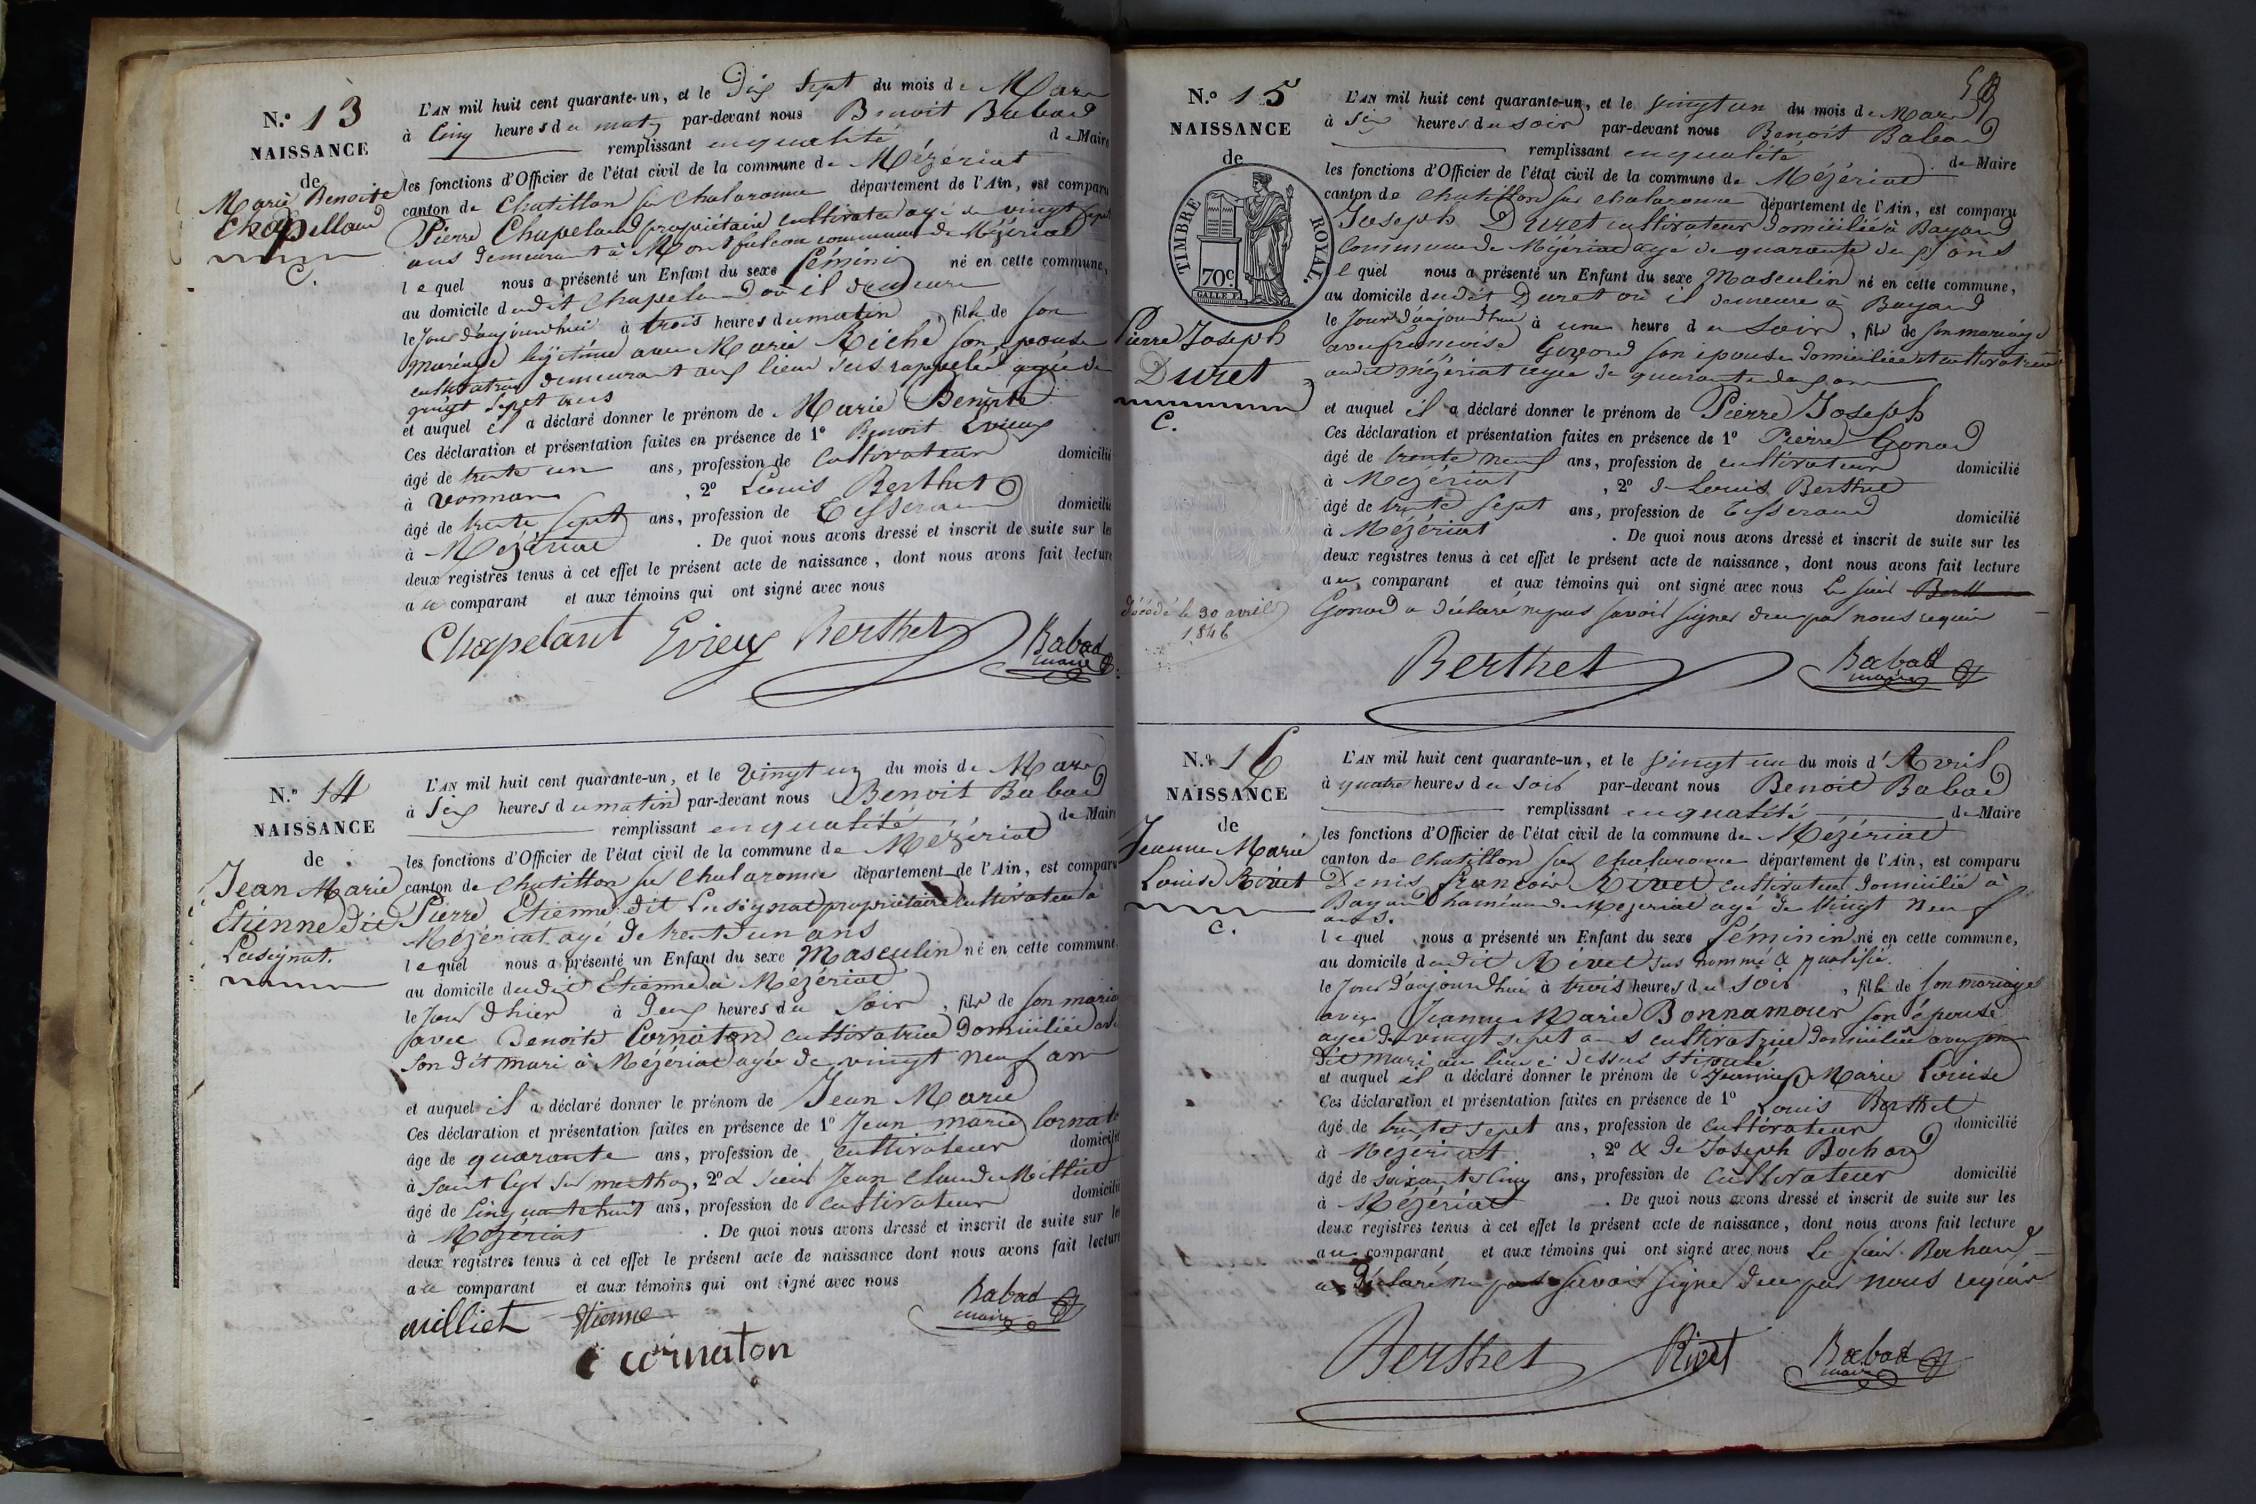 N.º 13
NAISSANCE
de
Marie Benoite
Chapelland
C.
L'AN mil huit cent quarante-un, et le Dix Sept du mois de Mars
à Cinq heures du matin par-devant nous Benoit Babad
remplissant en qualité de Maire
les fonctions d'Officier de l'état civil de la commune de Mézériat
canton de Chatillon sur Chalaronne département de l'Ain, est comparu
Pierre Chapeland propriétaire cultivateur agé de vingt sept
ans demeurant à Montfalcon commune de Mézériat
lequel nous a présenté un Enfant du sexe féminin né en cette commune,
au domicile dudit Chapeland où il demeure
le Jour d'aujourdhui à trois heures du matin, fille de son
mariage légitime avec Marie Riche son épouse
cultivatrice demeurant aux lieux sus rappelés agée de
vingt sept ans
et auquel il a déclaré donner le prénom de Marie Benoite
Ces déclaration et présentation faites en présence de 1º Benoit Evieux
âgé de trente un ans, profession de Cultivateur domicilié
à Vonnas, 2º Louis Berthet
âgé de trente sept ans, profession de Tisserand domicilié
à Mézériat. De quoi nous avons dressé et inscrit de suite sur les
deux registres tenus à cet effet le présent acte de naissance, dont nous avons fait lecture
au comparant et aux témoins qui ont signé avec nous
Chapelant Evieux Berthet Babad
maire
N.º 14
NAISSANCE
de
Jean Marie
Etienne dit
Lusignat.
L'AN mil huit cent quarante-un, et le vingt un du mois de Mars
à Six heures du matin par-devant nous Benoit Babad
remplissant en qualité de Maire
les fonctions d'Officier de l'état civil de la commune de Mézériat
canton de Chatillon sur Chalaronne département de l'Ain, est comparu
Pierre Etienne dit Lusignat propriétaire cultivateur à
Mézériat agé de trente un ans
lequel nous a présenté un Enfant du sexe Masculin né en cette commune,
au domicile dudit Etienne à Mézériat
le Jour d'hier à deux heures du Soir, fils de son mariage
avec Benoite Cornaton cultivatrice domiciliée avec
son dit mari à Mézériat agée de vingt neuf ans
et auquel il a déclaré donner le prénom de Jean Marie
Ces déclaration et présentation faites en présence de 1º Jean marie Cornaton
âge de quarante ans, profession de cultivateur domicilié
à Saint Cyr sur menthon, 2º & Sieur Jean Claude Milliet
âgé de Cinquante huit ans, profession de Cultivateur domicilié
à Mézériat. De quoi nous avons dressé et inscrit de suite sur les
deux registres tenus à cet effet le présent acte de naissance dont nous avons fait lecture
au comparant et aux témoins qui ont signé avec nous
milliet Etienne Babad
maire
cornaton
N.º 15
NAISSANCE
de
TIMBRE ROYAL.
70c.
Pierre Joseph
Duret
C.
décédé le 30 avril
1846
L'AN mil huit cent quarante-un, et le vingt un du mois de Mars
à Six heures du soir par-devant nous Benoit Babad
remplissant en qualité de Maire
les fonctions d'Officier de l'état civil de la commune de Mézériat
canton de Chatillon sur Chalaronne département de l'Ain, est comparu
Joseph Duret cultivateur domicilié à Bayard
Commune de Mézériat agé de quarante deux ans
lequel nous a présenté un Enfant du sexe Masculin né en cette commune,
au domicile dudit Duret où il demeure à Bayard
le Jour d'aujourd'hui à une heure du Soir, fils de son mariage
avec francoise Gonod son épouse domiciliée et cultivatrice
audit Mézériat agée de quarante deux ans
et auquel il a déclaré donner le prénom de Pierre Joseph
Ces déclaration et présentation faites en présence de 1º Pierre Gonod
âgé de trente neuf ans, profession de cultivateur domicilié
à Mézériat, 2º de Louis Berthet
âgé de trente sept ans, profession de Tisserand domicilié
à Mézériat. De quoi nous avons dressé et inscrit de suite sur les
deux registres tenus à cet effet le présent acte de naissance, dont nous avons fait lecture
au comparant et aux témoins qui ont signé avec nous Le sieur
Gonod a déclaré ne pas savoir signer de ce par nous requis
Berthet Babad
maire
N.º 16
NAISSANCE
de
Jeanne Marie
Louise Rivet
C.
L'AN mil huit cent quarante-un, et le vingt un du mois d'Avril
à quatre heures du Soir par-devant nous Benoit Babad
remplissant en qualité de Maire
les fonctions d'Officier de l'état civil de la commune de Mézériat
canton de Chatillon sur Chalaronne département de l'Ain, est comparu
Denis francois Rivet cultivateur domicilié à
Bayard hameau de Mézériat agé de vingt neuf
ans.
lequel nous a présenté un Enfant du sexe féminin né en cette commune,
au domicile dudit Rivet sus nommé & qualifié.
le Jour d'aujourdhui à trois heures du Soir, fille de son mariage
avec Jeanne Marie Bonnamour son épouse
agée de vingt sept ans cultivatrice domiciliée avec son
dit mari au lieu ci dessus stipulé
et auquel il a déclaré donner le prénom de Jeanne Marie Louise
Ces déclaration et présentation faites en présence de 1º Louis Berthet
âgé de trente sept ans, profession de cultivateur domicilié
à Mézériat, 2º & de Joseph Bochard
âgé de soixante Cinq ans, profession de Cultivateur domicilié
à Mézériat. De quoi nous avons dressé et inscrit de suite sur les
deux registres tenus à cet effet le présent acte de naissance, dont nous avons fait lecture
au comparant et aux témoins qui ont signé avec nous Le sieur Bochard
a déclaré ne pas savoir signer de ce par nous requis
Berthet Rivet Babad
maire